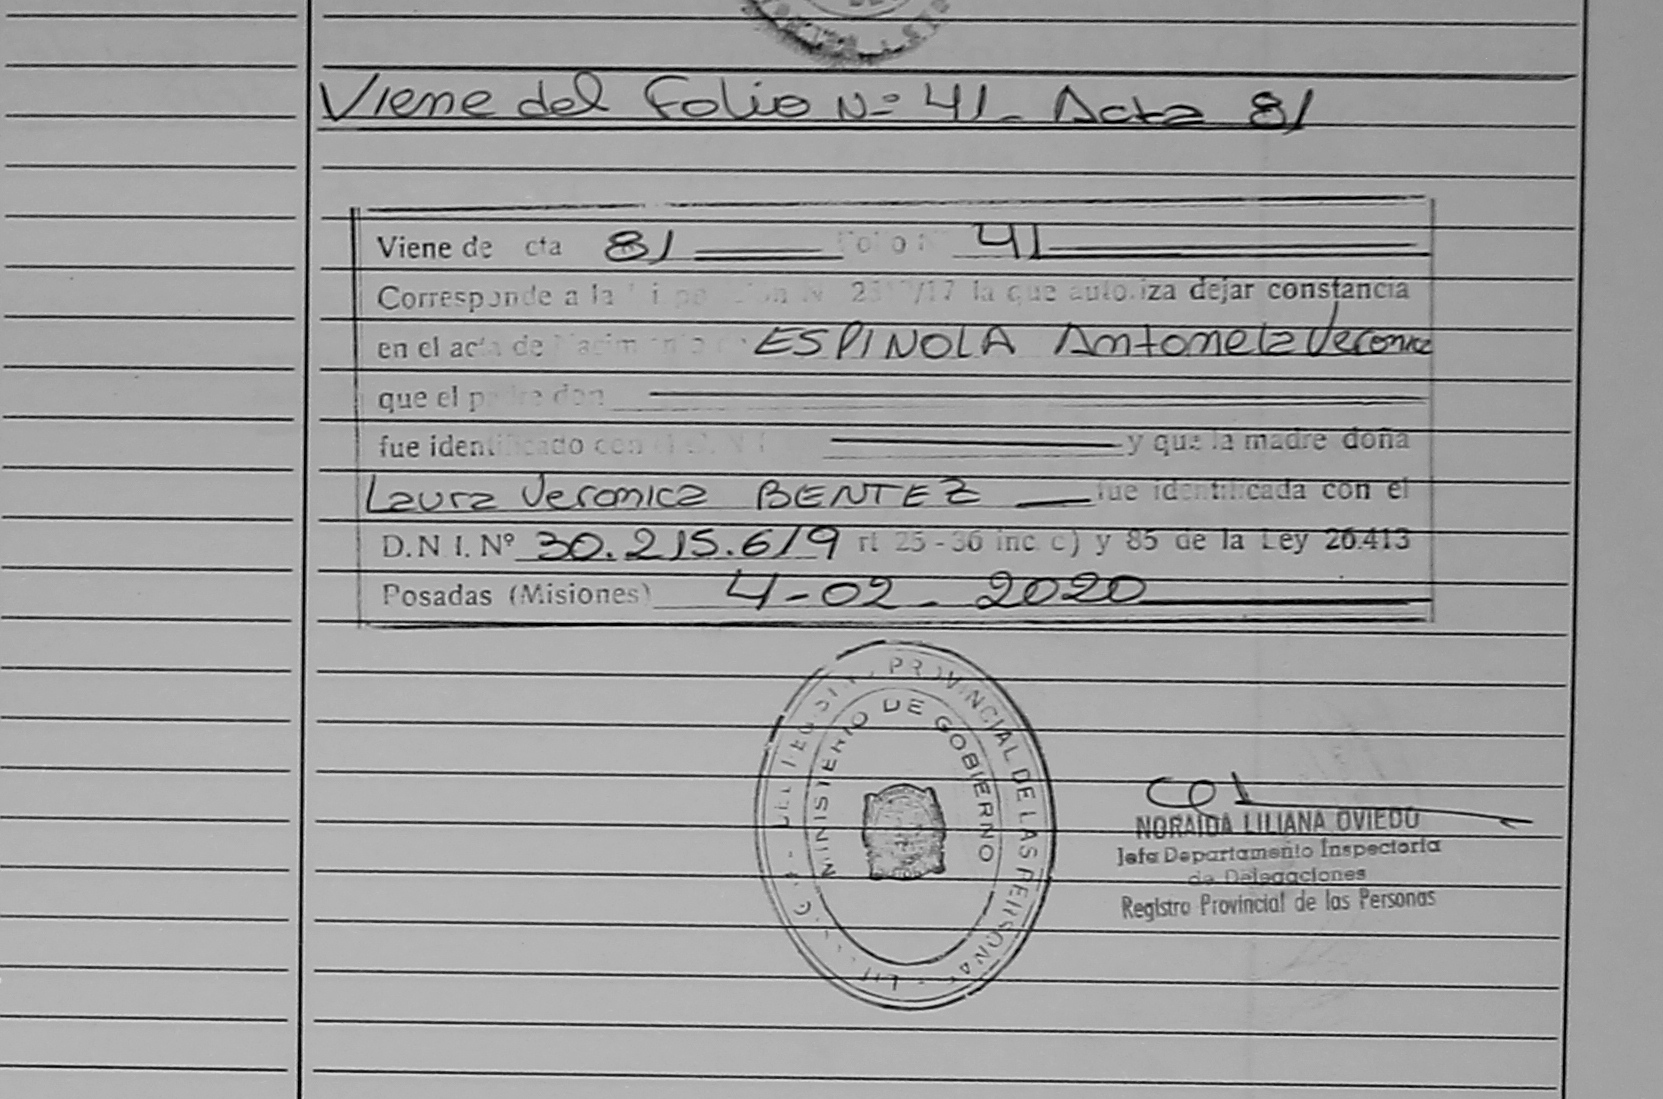 Viene del Folio Nº 41 - Acta 81
Viene de cta 81 Folio N 41
Corresponde a la la que autoriza dejar constancia
en el acta de Nacimiento ESPINOLA Antonela Veronica
que el padre don
fue identificado con el D.N.I. y que la madre doña
Laura Veronica BENTEZ fue identificada con el
D.N.I. Nº 30.215.619 rt 25-36 inc c) y 85 de la Ley 26.413
Posadas (Misiones) 4-02-2020
PROVINCIAL DE LAS PERSONAS
MINISTERIO DE GOBIERNO
NORAIDA LILIANA OVIEDO
Jefa Departamento Inspectoria
de Delegaciones
Registro Provincial de las Personas